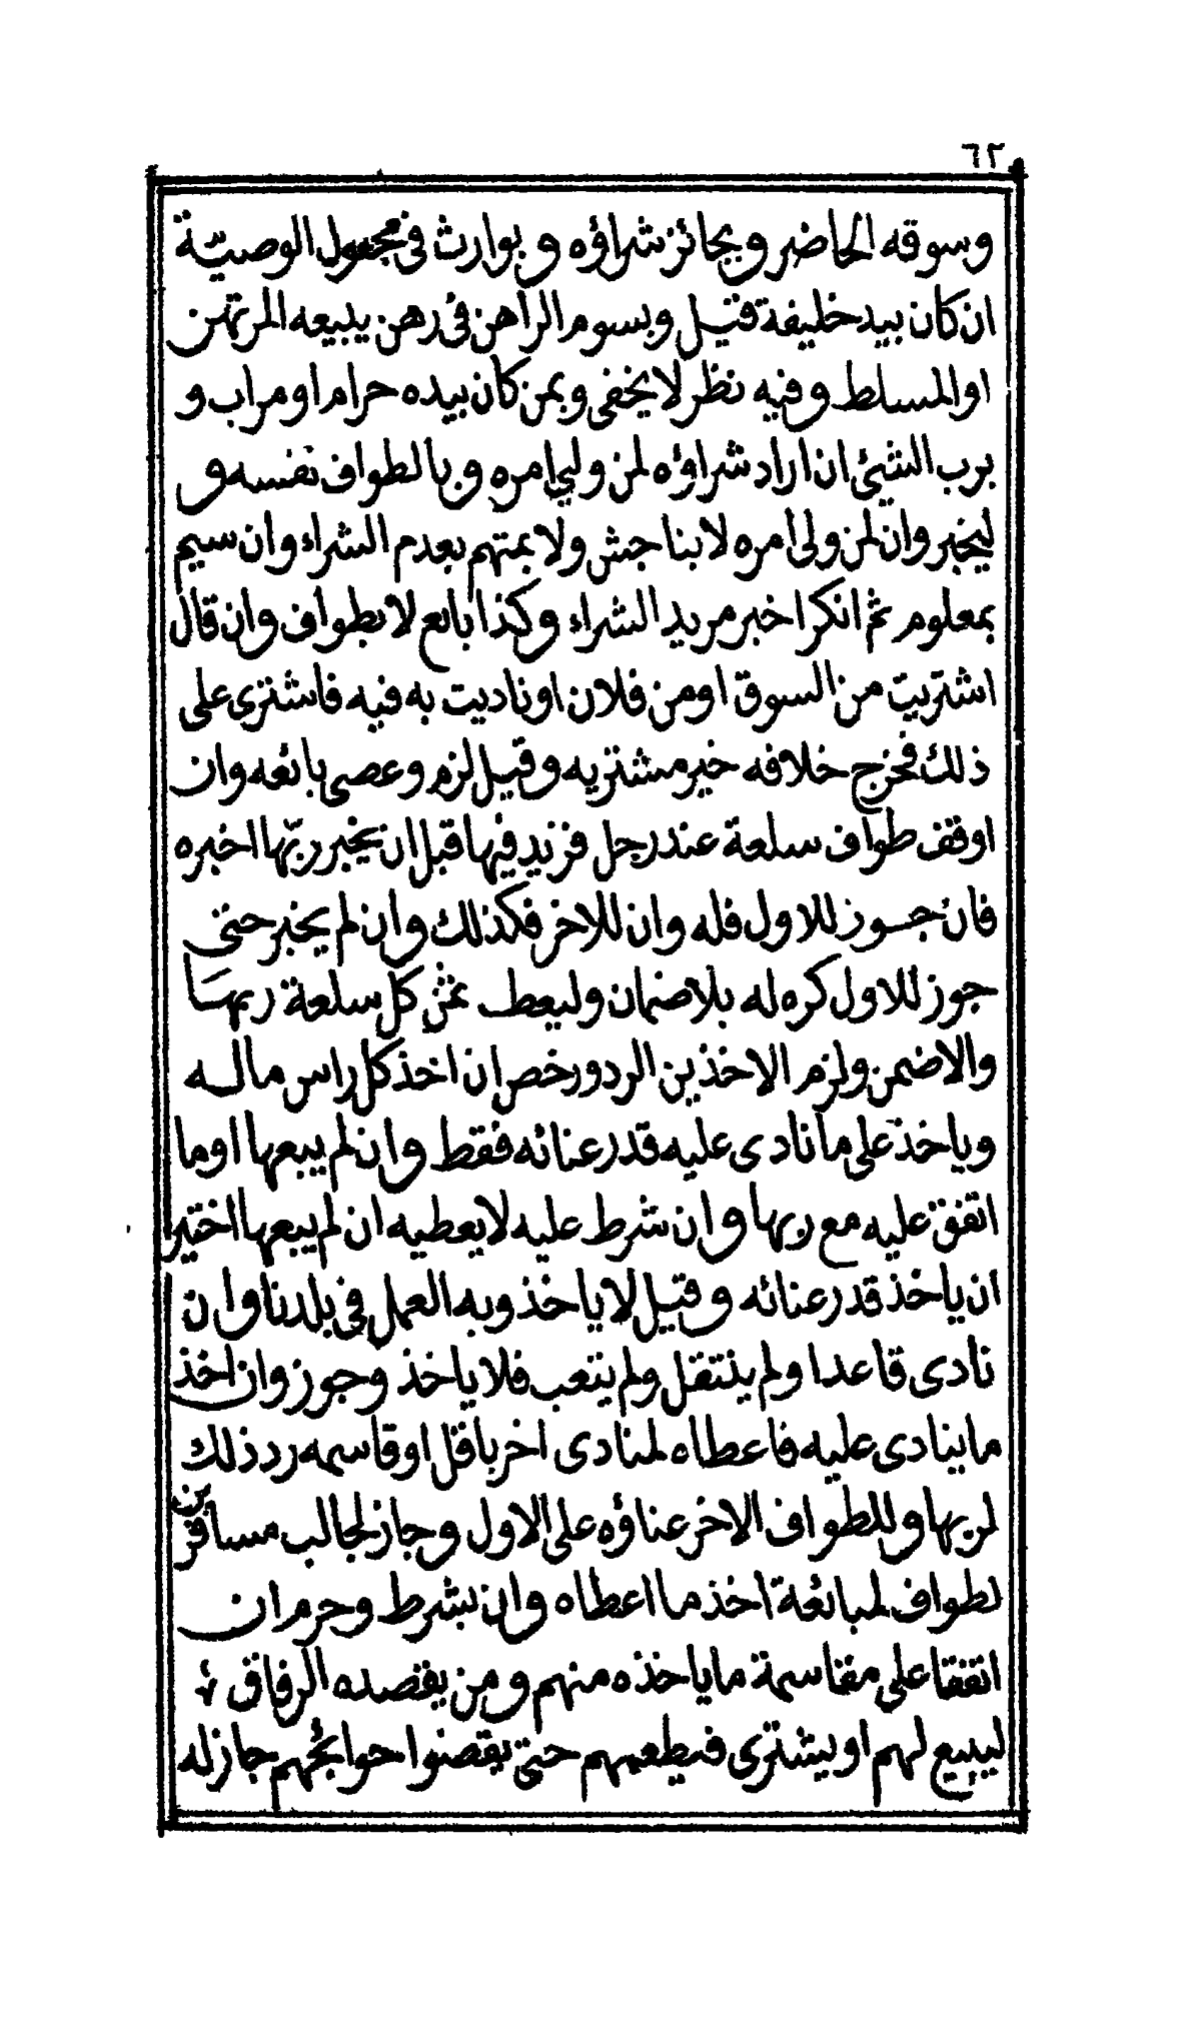 ٦٢
وسوقه الحاضر وبجائز شراؤه وبوارث في مجهول الوصيّة
ان كان بيد خليفة قتيل وبسوم الراهن في رهن يبيعه المرتهن
او المسلط وفيه نظر لا يخفى وبمن كان بيده حرام او مراب و
برب الشيئ ان اراد شراؤه لمن ولي امره وبالطواف نفسه و
ليخبر وان لمن ولى امره لا بناجش ولا بمتهم بعدم الشراء وان سيم
بمعلوم ثم انكر اخبر مريد الشراء وكذا بائع لا بطواف وان قال
اشتريت من السوق او من فلان او ناديت به فيه فاشترى على
ذلك فخرج خلافه خير مشتريه وقيل لزم وعصى بائعه وان
اوقف طواف سلعة عند رجل فزيد فيها قبل ان يخبر ربّها اخبره
فان جوز للاول فله وان للاخر فكذلك وان لم يخبر حتى
جوز للاول كره له بلا ضمان وليعط ثمن كل سلعة ربها
والا ضمن ولزم الاخذين الرد ورخص ان اخذ كل راس ماله
وياخذ على ما نادى عليه قدر عنائه فقط وان لم يبعها او ما
اتفق عليه مع ربها وان شرط عليه لا يعطيه ان لم يبعها اختير
ان ياخذ قدر عنائه وقيل لا ياخذ وبه العمل في بلدنا وان
نادى قاعدا ولم ينتقل ولم يتعب فلا ياخذ وجوز وان اخذ
ما ينادى عليه فاعطاه لمنادى اخر باقل او قاسمه رد ذلك
لربها وللطواف الاخر عناؤه على الاول وجاز لجالب مسافرين
لطواف لمبائعة اخذ ما اعطاه وان بشرط وحرم ان
اتفقا على مقاسمة ما ياخذه منهم ومن يقصده الرفاق
ليبيع لهم او يشترى فيطعمهم حتى يقضوا حوائجهم جاز له